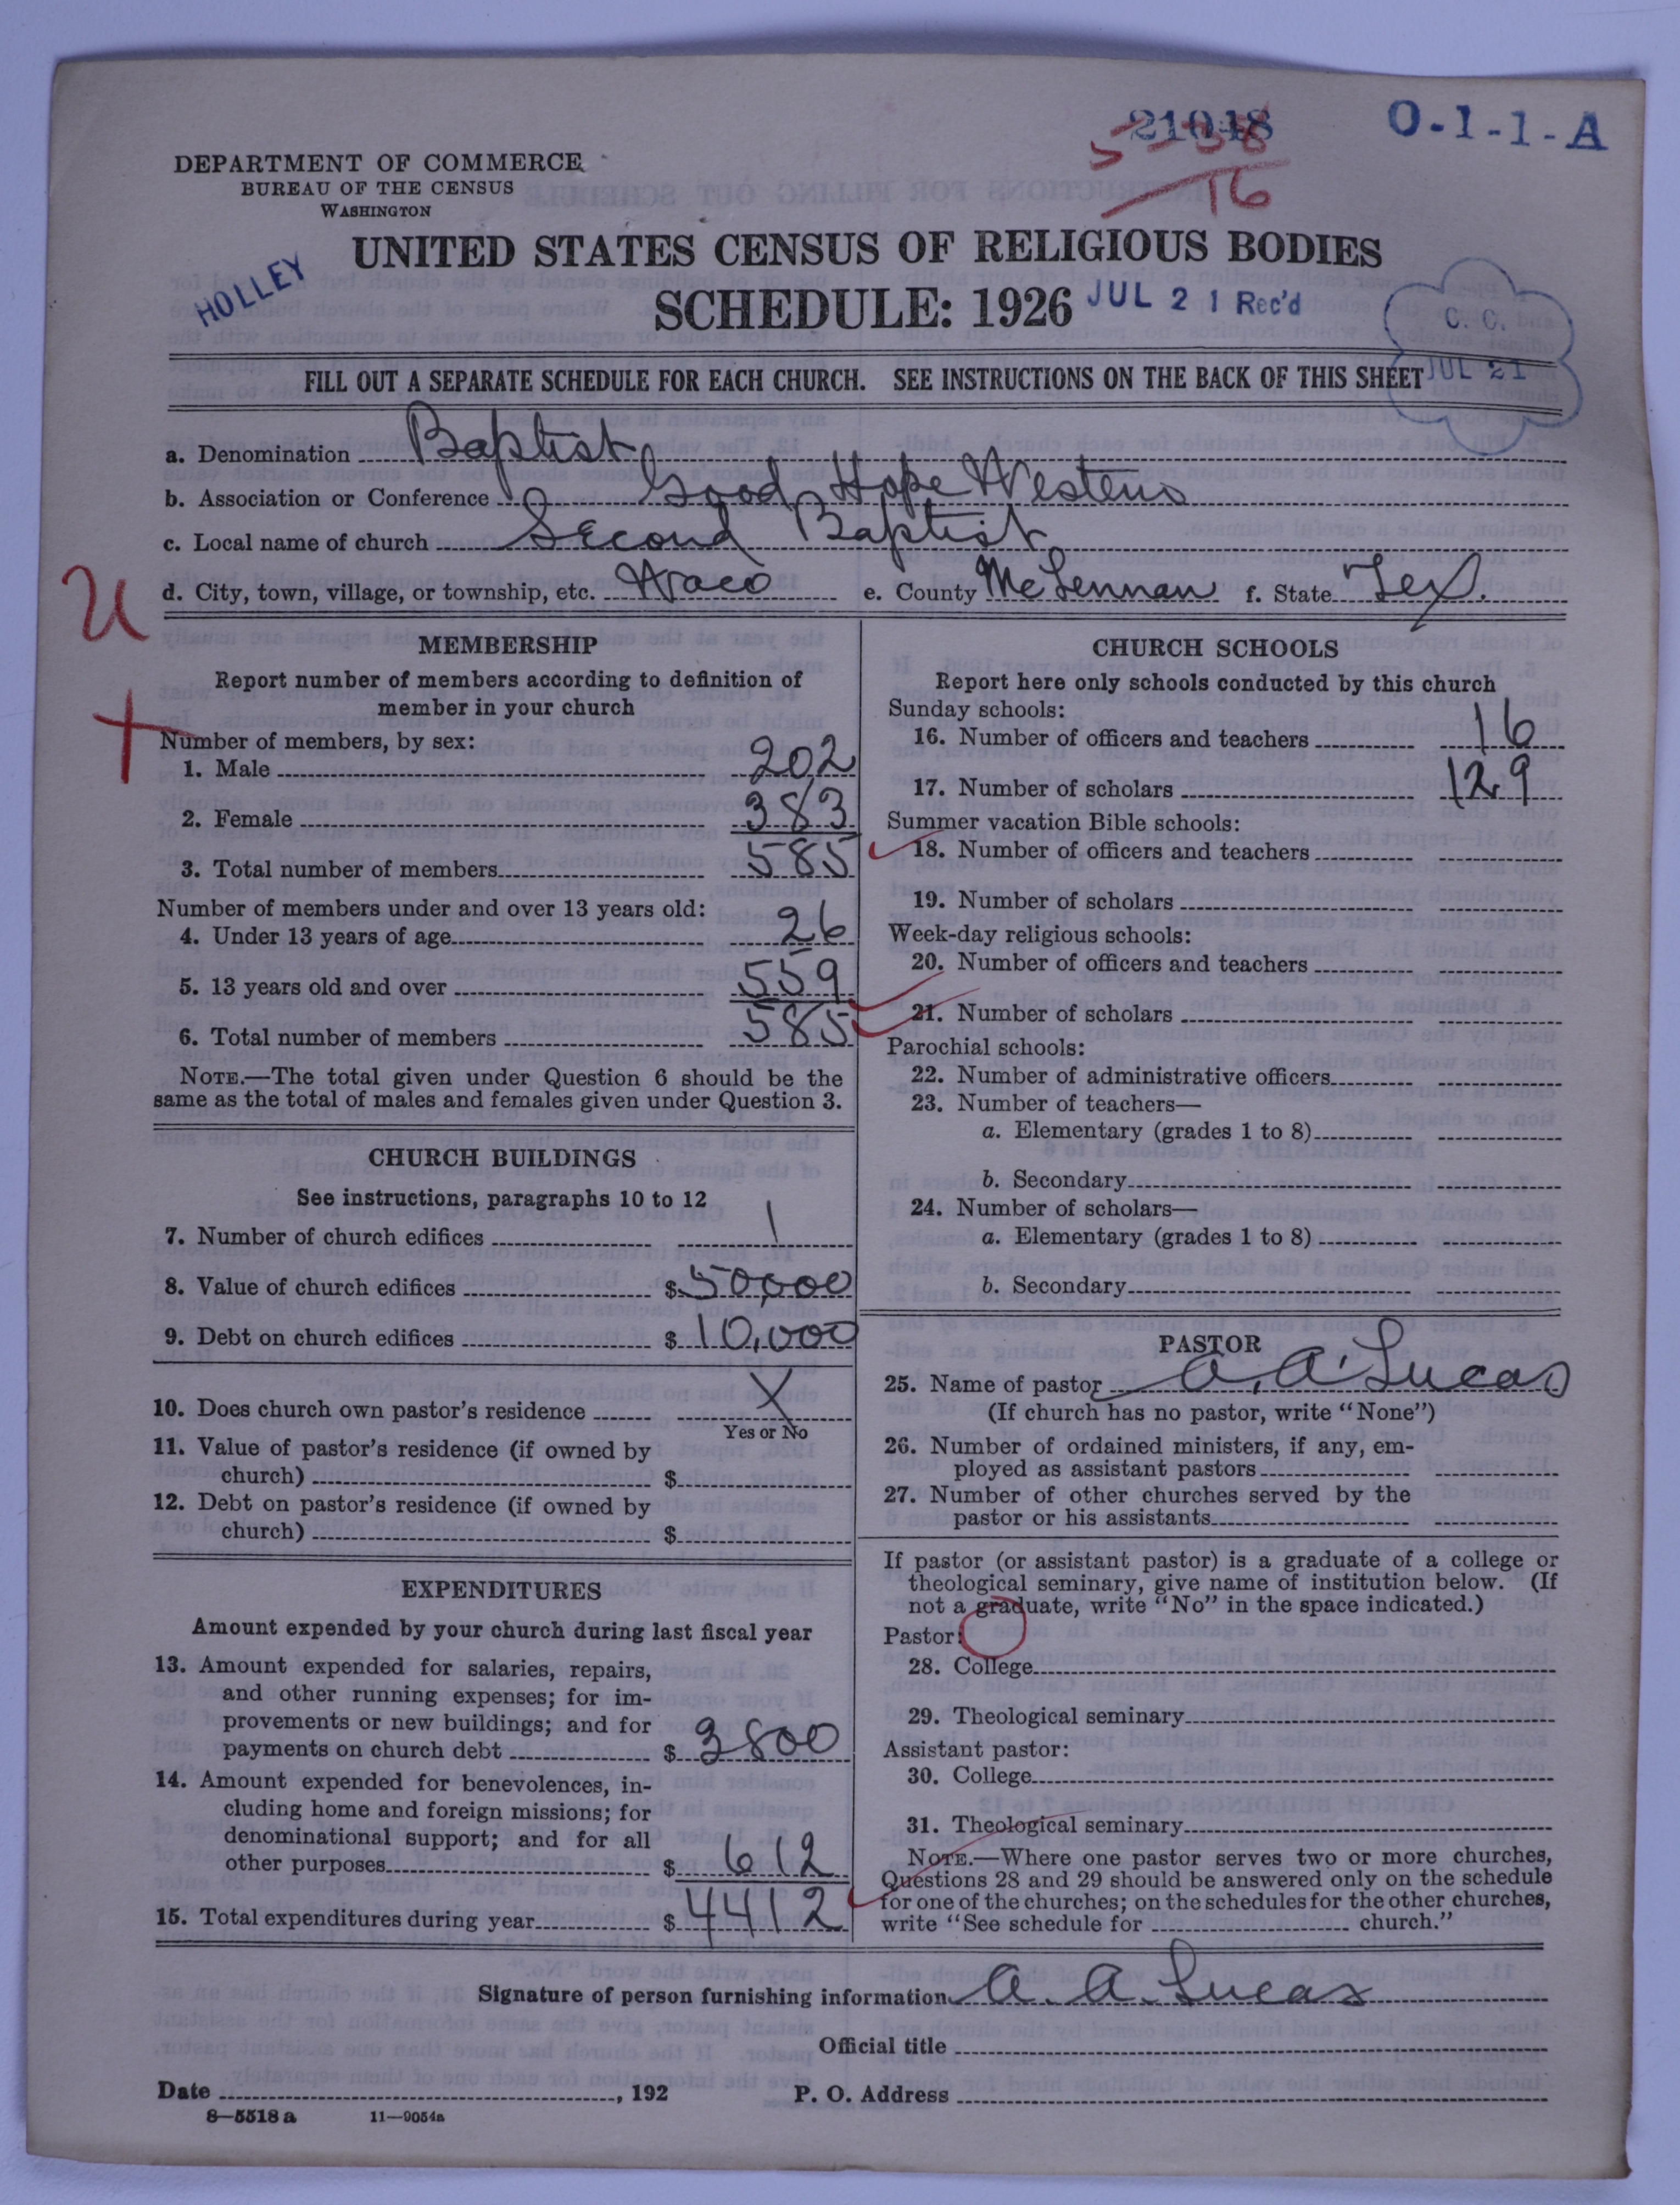 21048
5-38
16
O-1-1-A
DEPARTMENT OF COMMERCE
BUREAU OF THE CENSUS
WASHINGTON
UNITED STATES CENSUS OF RELIGIOUS BODIES
HOLLEY
SCHEDULE: 1926 JUL 21 Rec'd
C. C.
JUL 21
FILL OUT A SEPARATE SCHEDULE FOR EACH CHURCH. SEE INSTRUCTIONS ON THE BACK OF THIS SHEET
a. Denomination Baptist
b. Association or Conference Good Hope Western
c. Local name of church Second Baptist
d. City, town, village, or township, etc. Waco e. County McLennan f. State Tex.
U
MEMBERSHIP
Report number of members according to definition of
member in your church
Number of members, by sex:
1. Male 202
2. Female 383
3. Total number of members 585
Number of members under and over 13 years old:
4. Under 13 years of age 26
5. 13 years old and over 559
6. Total number of members 585
NOTE.—The total given under Question 6 should be the
same as the total of males and females given under Question 3.
CHURCH BUILDINGS
See instructions, paragraphs 10 to 12
7. Number of church edifices 1
8. Value of church edifices $ 50,000
9. Debt on church edifices $ 10,000
10. Does church own pastor's residence X
Yes or No
11. Value of pastor's residence (if owned by
church) $
12. Debt on pastor's residence (if owned by
church) $
EXPENDITURES
Amount expended by your church during last fiscal year
13. Amount expended for salaries, repairs,
and other running expenses; for im-
provements or new buildings; and for
payments on church debt $ 3800
14. Amount expended for benevolences, in-
cluding home and foreign missions; for
denominational support; and for all
other purposes $ 612
15. Total expenditures during year $ 4412
CHURCH SCHOOLS
Report here only schools conducted by this church
Sunday schools:
16. Number of officers and teachers 16
17. Number of scholars 129
Summer vacation Bible schools:
18. Number of officers and teachers
19. Number of scholars
Week-day religious schools:
20. Number of officers and teachers
21. Number of scholars
Parochial schools:
22. Number of administrative officers
23. Number of teachers—
a. Elementary (grades 1 to 8)
b. Secondary
24. Number of scholars—
a. Elementary (grades 1 to 8)
b. Secondary
PASTOR
25. Name of pastor A. A. Lucas
(If church has no pastor, write "None")
26. Number of ordained ministers, if any, em-
ployed as assistant pastors
27. Number of other churches served by the
pastor or his assistants
If pastor (or assistant pastor) is a graduate of a college or
theological seminary, give name of institution below. (If
not a graduate, write "No" in the space indicated.)
Pastor:
28. College
29. Theological seminary
Assistant pastor:
30. College
31. Theological seminary
NOTE.—Where one pastor serves two or more churches,
Questions 28 and 29 should be answered only on the schedule
for one of the churches; on the schedules for the other churches,
write "See schedule for ______ church."
Signature of person furnishing information A. A. Lucas
Official title
Date , 192 P. O. Address
8—5518 a 11—9054a